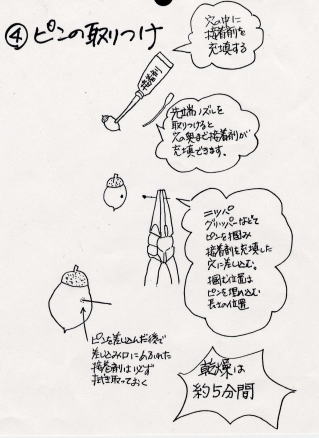 ④ピンの取りつけ
穴の中に
接着剤を
充填する
接着剤
先端ノズルを
取りつけると
穴の奥まで接着剤が
充填できます。
ニッパ
グリッパーなどで
ピンを掴み
接着剤を充填した
穴に差し込む。
掴む位置は
ピンを埋め込む
長さの位置
ピンを差し込んだ後で
差し込み口にあふれた
接着剤は必ず
拭き取っておく
乾燥は
約5分間